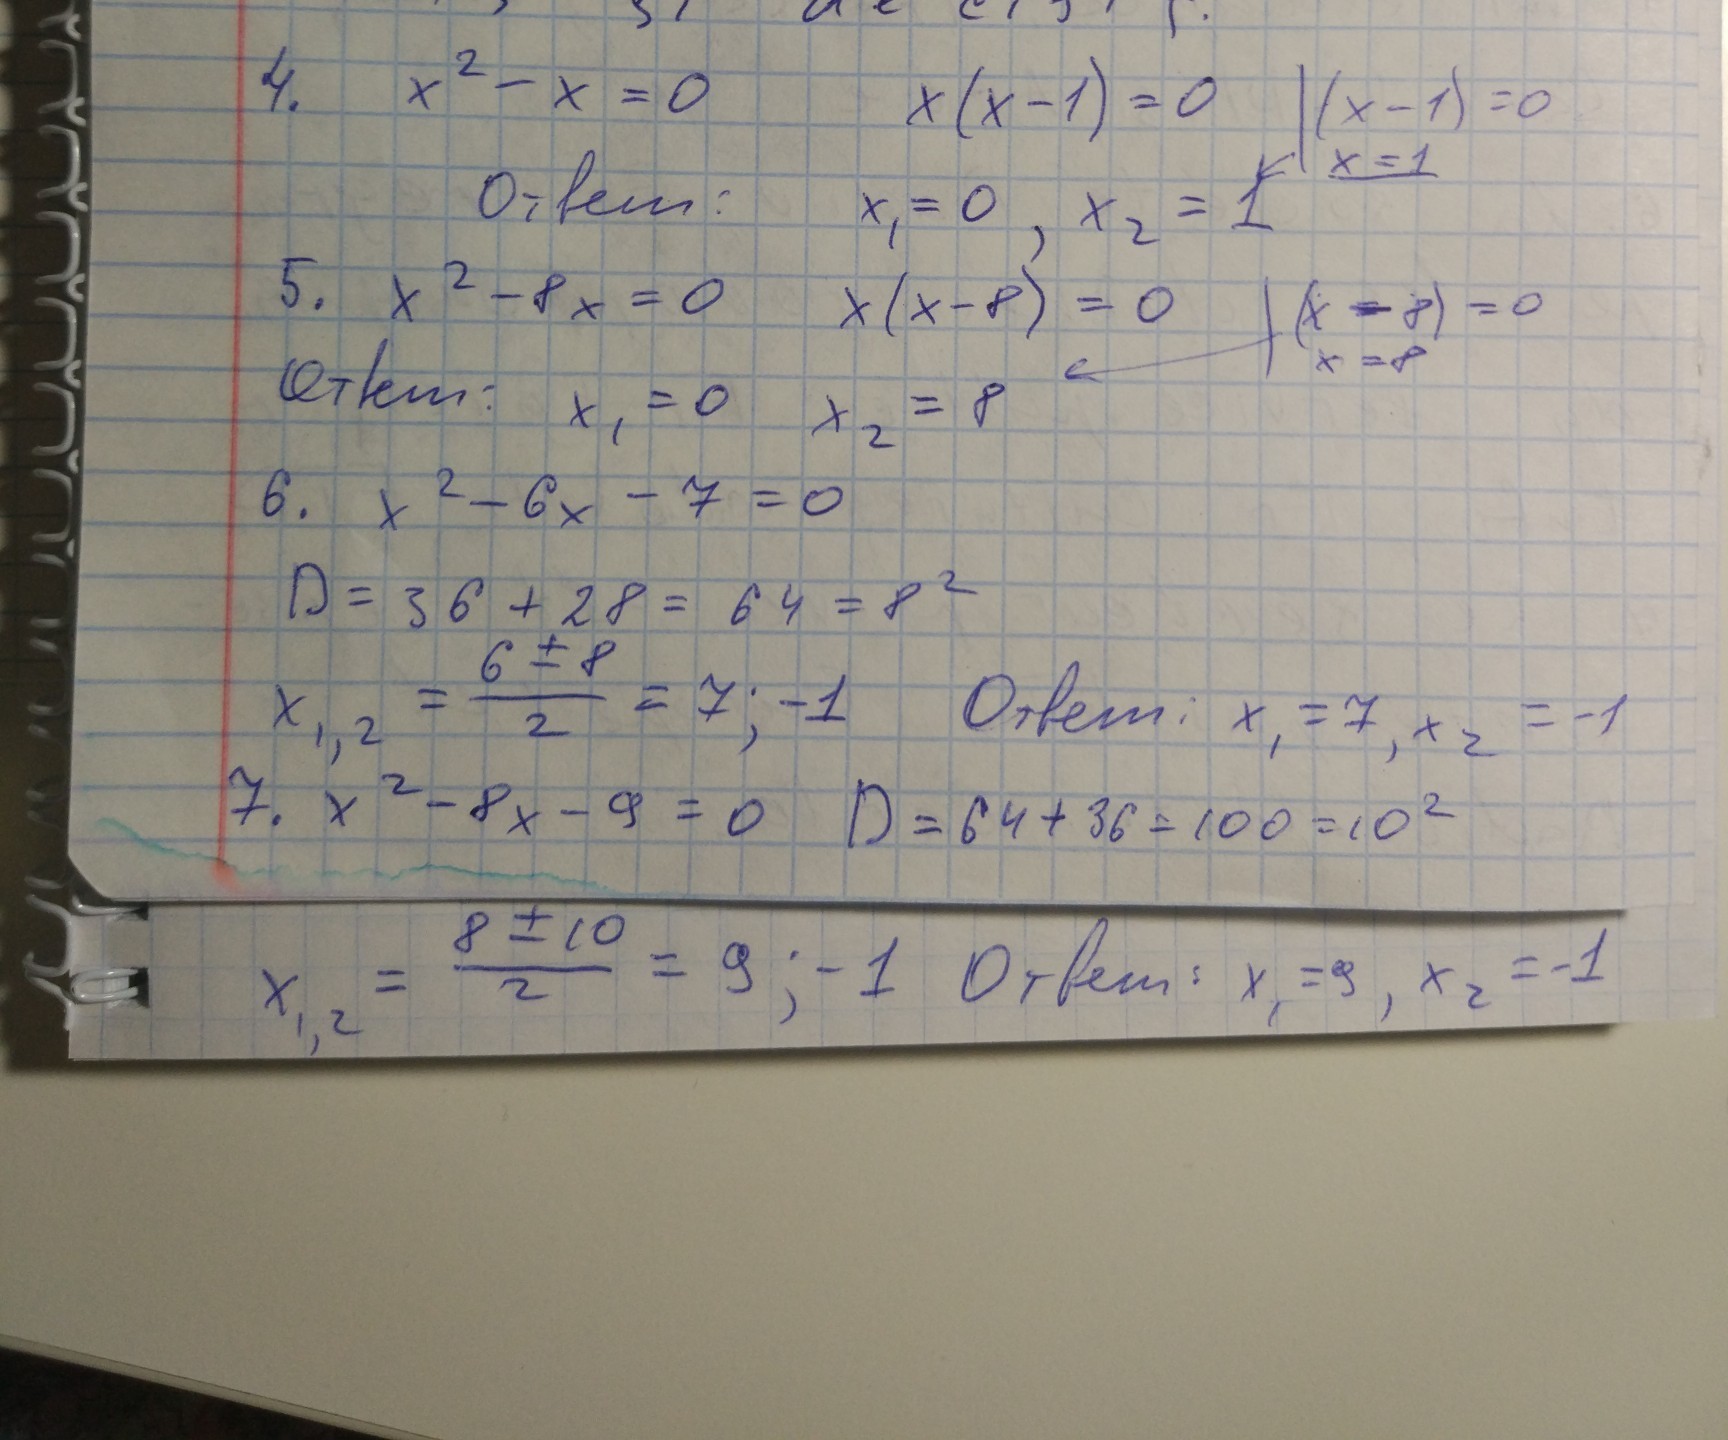 4. x² - x = 0 x(x-1) = 0 | (x-1) = 0
x = 1
Ответ: x₁ = 0, x₂ = 1
5. x² - 8x = 0 x(x-8) = 0 | (x - 8) = 0
x = 8
Ответ: x₁ = 0 x₂ = 8
6. x² - 6x - 7 = 0
D = 36 + 28 = 64 = 8²
x₁,₂ = (6 ± 8)/2 = 7; -1 Ответ: x₁ = 7, x₂ = -1
7. x² - 8x - 9 = 0 D = 64 + 36 = 100 = 10²
x₁,₂ = (8 ± 10)/2 = 9; -1 Ответ: x₁ = 9, x₂ = -1